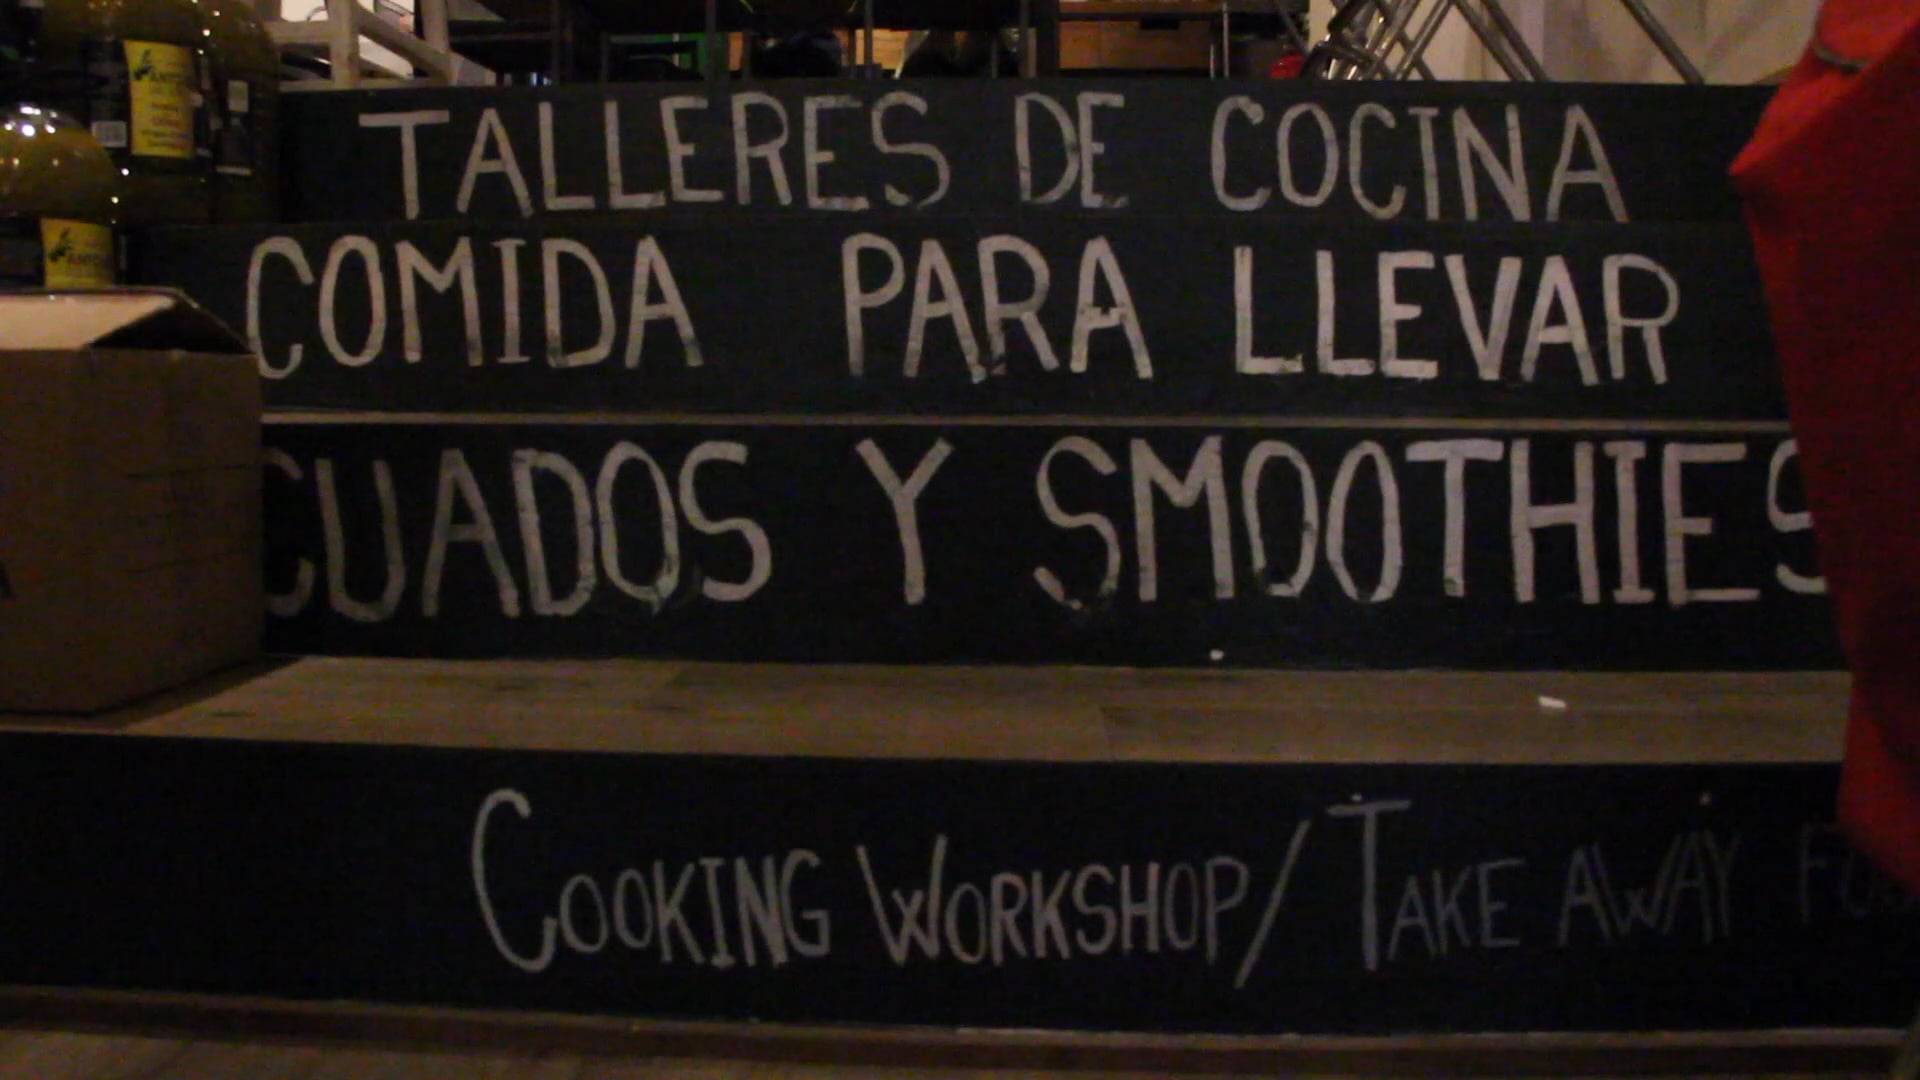 TALLERES DE COCINA
COMIDA PARA LLEVAR
CUADOS Y SMOOTHIES
COOKING WORKSHOP/TAKE AWAY